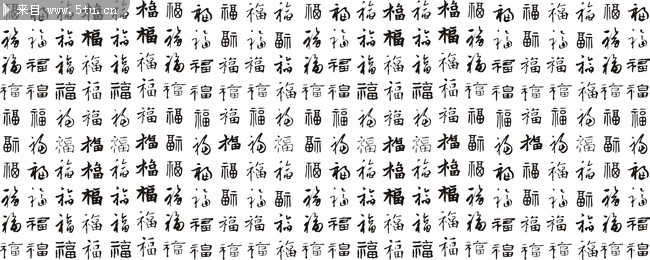 来自 www.5tu.cn
福福福福福福福福福福福福福福福福福福福福福福福
福福福福福福福福福福福福福福福福福福福福福福福福
福福福福福福福福福福福福福福福福福福福福福福福福
福福福福福福福福福福福福福福福福福福福福福福福福
福福福福福福福福福福福福福福福福福福福福福福福福
福福福福福福福福福福福福福福福福福福福福福福福福
福福福福福福福福福福福福福福福福福福福福福福福福
福福福福福福福福福福福福福福福福福福福福福福福福
福福福福福福福福福福福福福福福福福福福福福福福福
福福福福福福福福福福福福福福福福福福福福福福福福